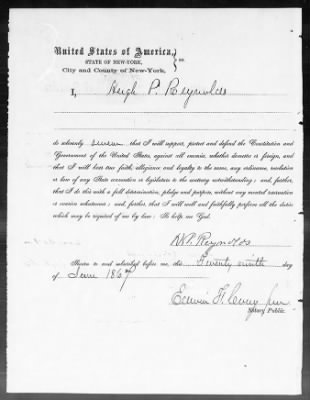 United States of America,
STATE OF NEW-YORK, } ss.
City and County of New-York,
I, Hugh P. Reynolds
do solemnly swear, that I will support, protect and defend the Constitution and
Government of the United States, against all enemies, whether domestic or foreign, and
that I will bear true faith, allegiance and loyalty to the same, any ordinance, resolution
or law of any State convention or legislature to the contrary notwithstanding; and, further,
that I do this with a full determination, pledge and purpose, without any mental reservation
or evasion whatsoever; and, further, that I will well and faithfully perform all the duties
which may be required of me by law: So help me God.
H P. Reynolds
Sworn to and subscribed before me, this Twenty ninth day
of June 1867
Edwin F. Corey jun
Notary Public.